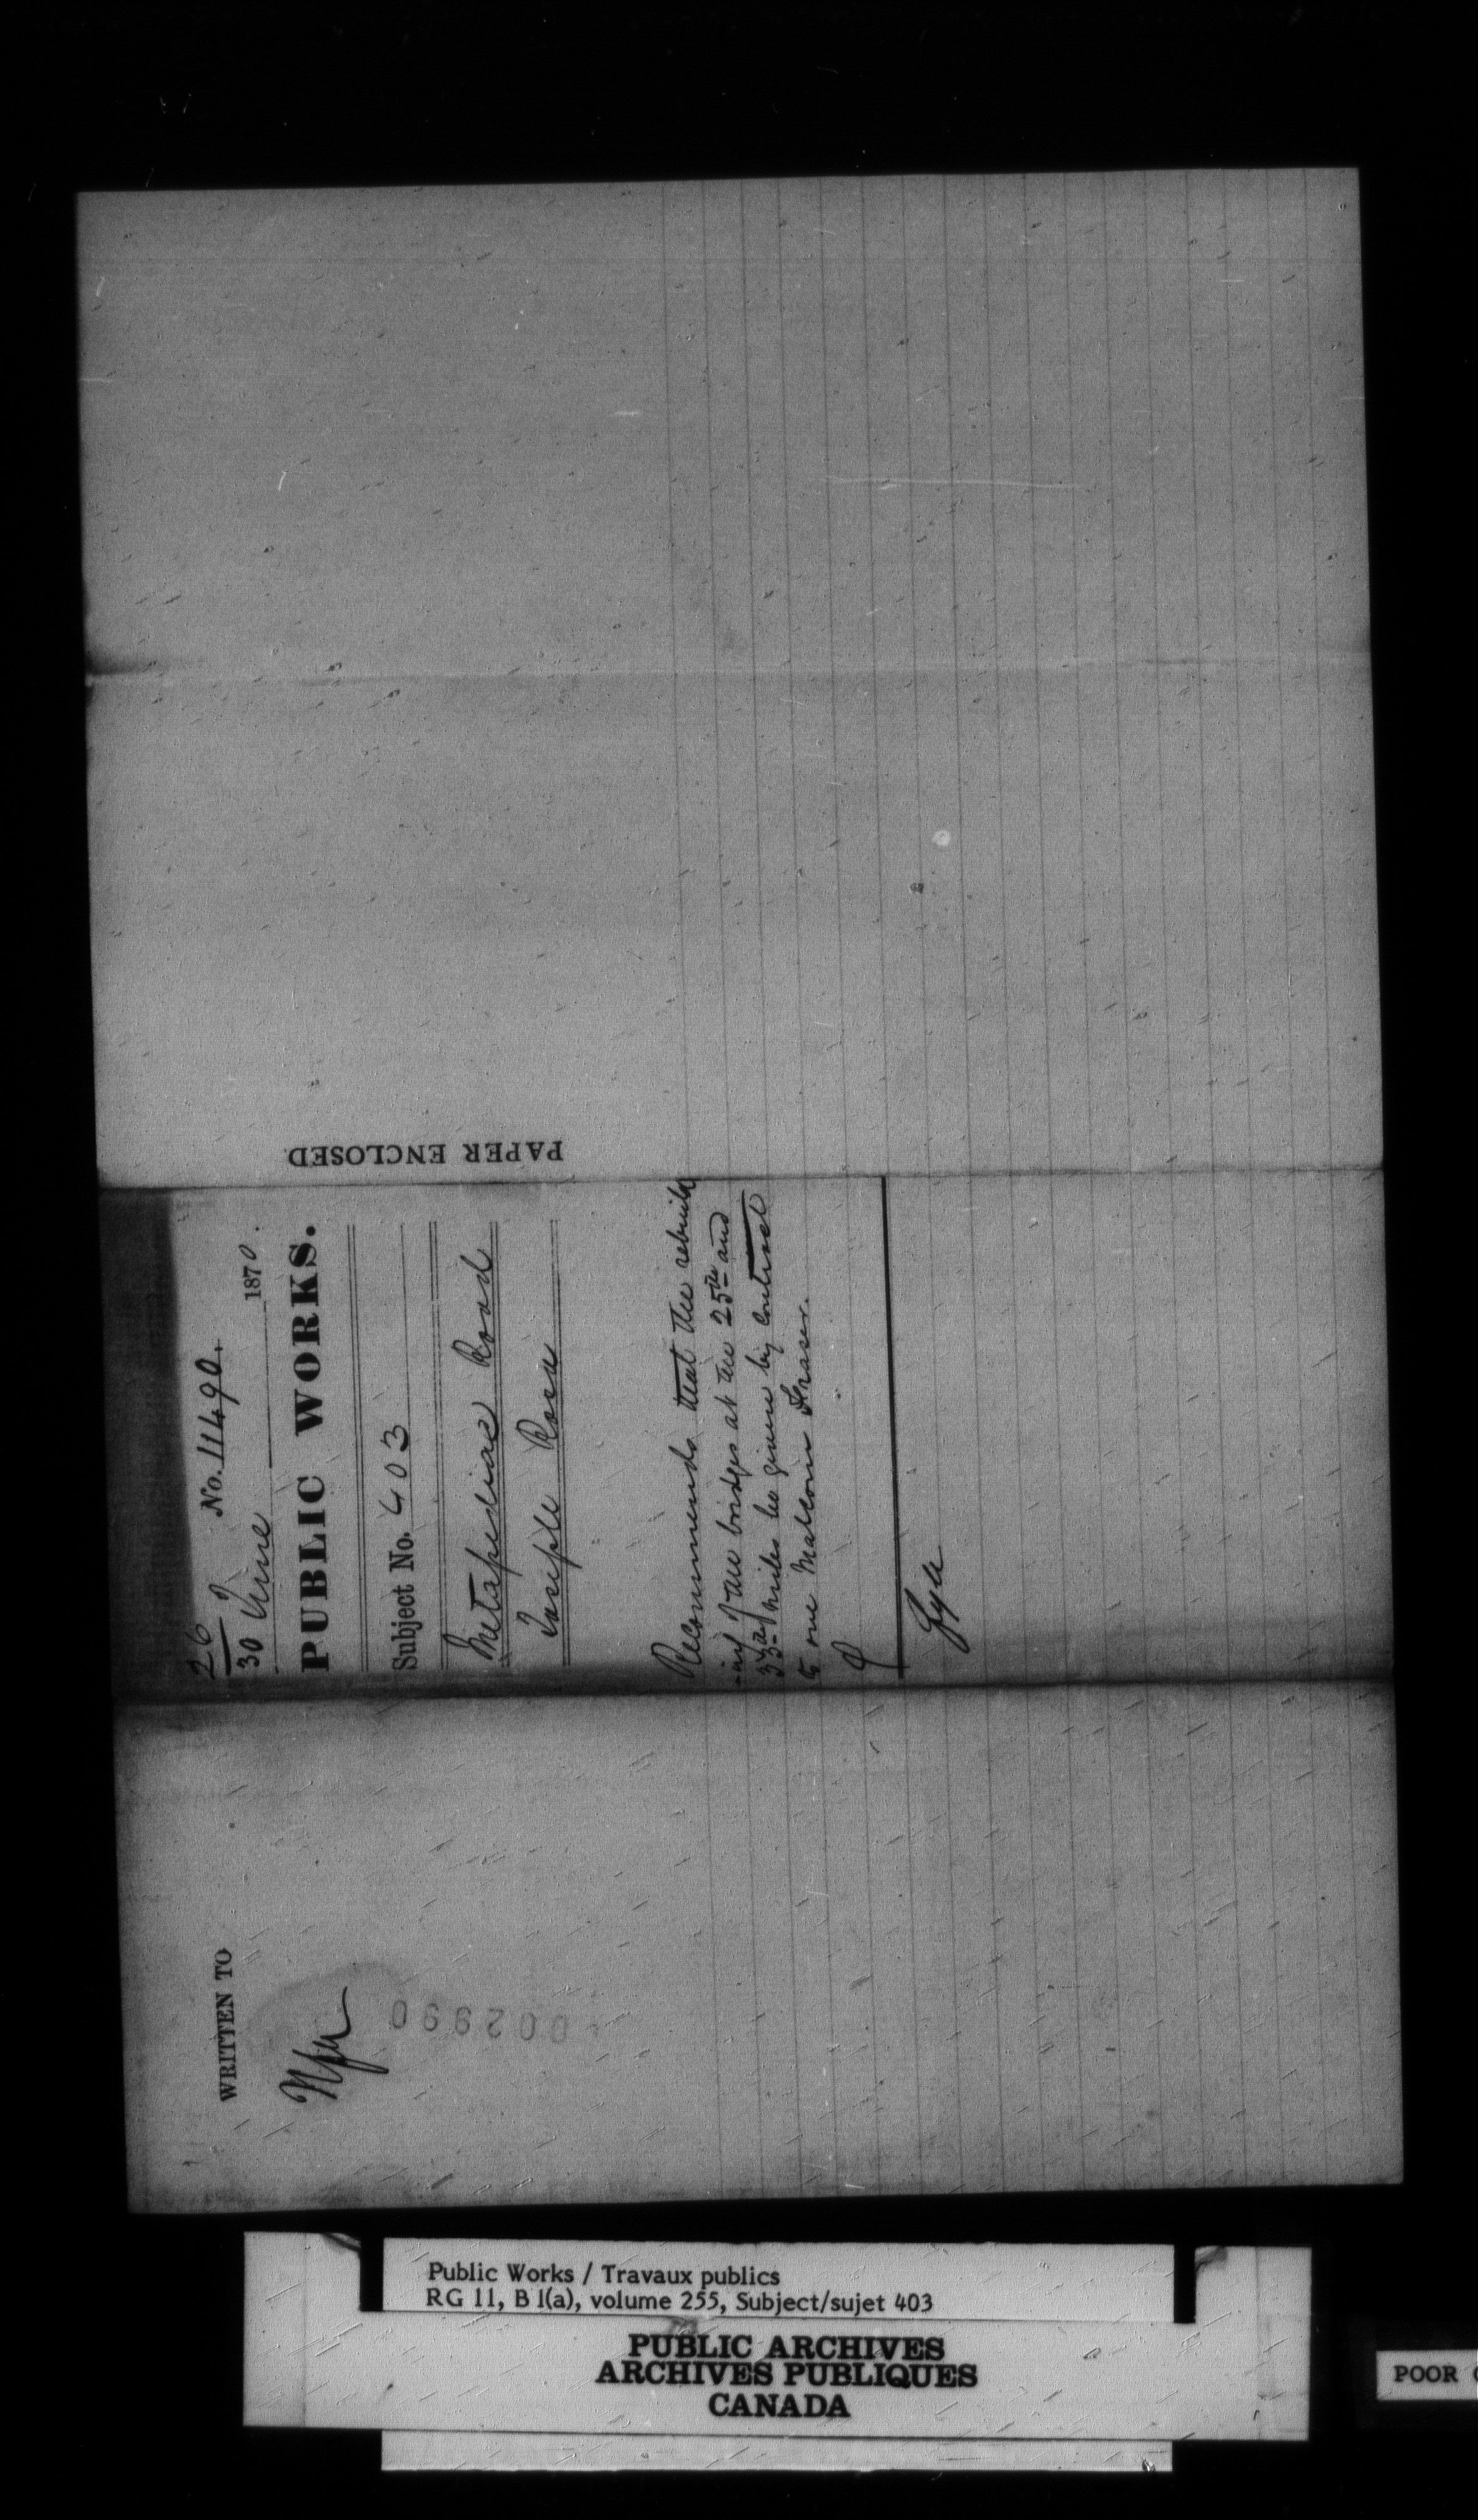 PAPER ENCLOSED
26
30 June 1870.
No. 11490.
PUBLIC WORKS.
Subject No. 403
Metapediac Road
Joseph Rosa
Recommends that the rebuild
-ing of the bridges at the 25th and
33d miles be given by contract
to one Malcolm Fraser.
Fyle
WRITTEN TO
002990
Public Works / Travaux publics
RG 11, B 1(a), volume 255, Subject/sujet 403
PUBLIC ARCHIVES
ARCHIVES PUBLIQUES
CANADA
POOR